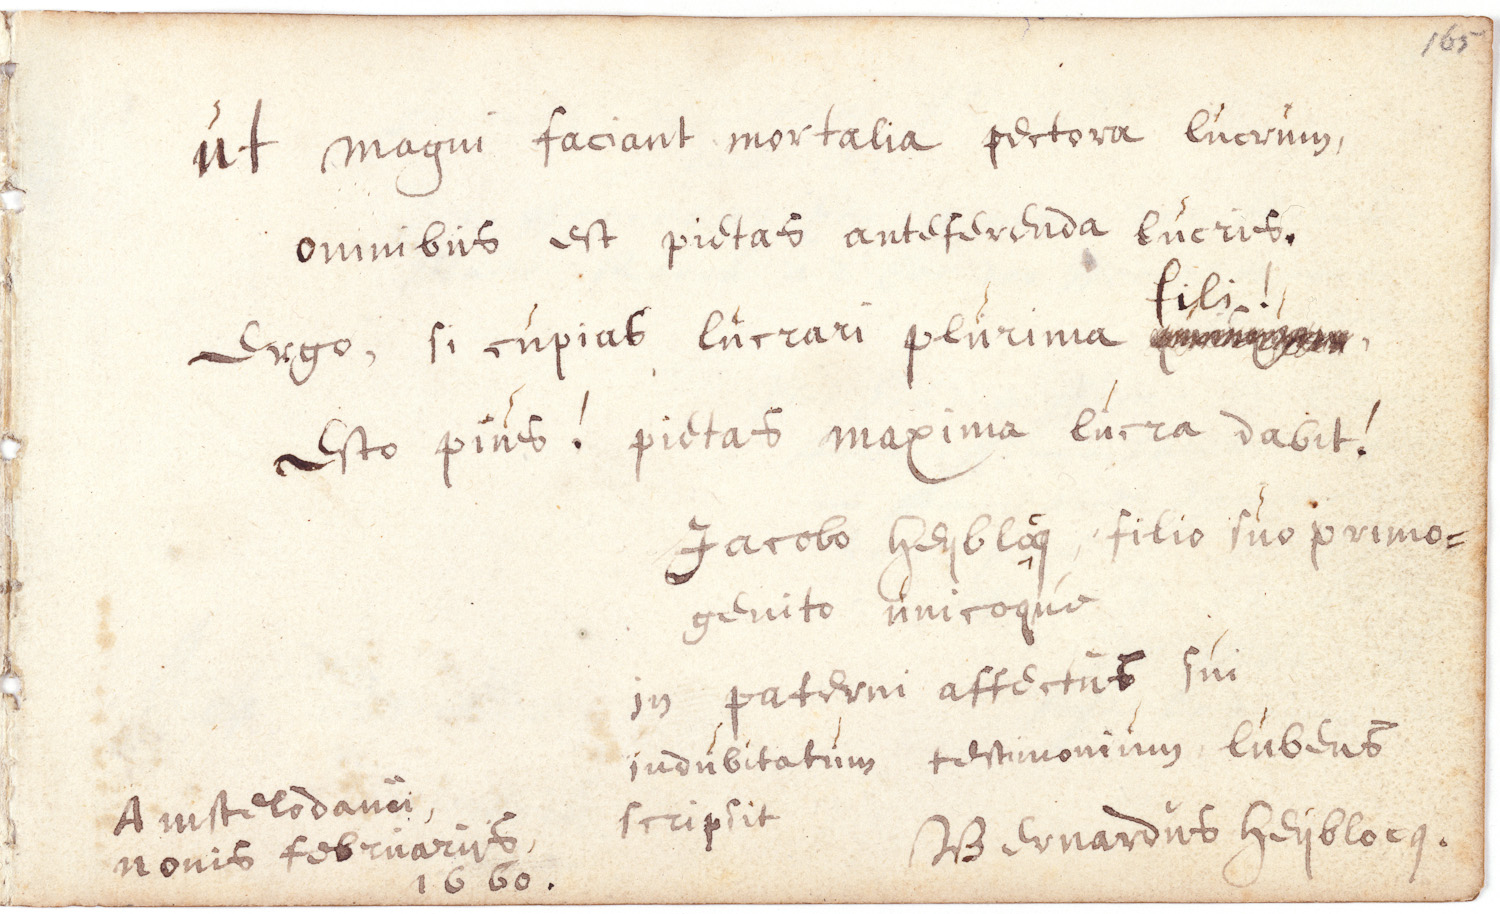 165
ut magni faciant mortalia pectora lucrum,
omnibus est pietas anteferenda lucris.
fili!
Ergo, si cupias lucrari plurima
Esto pius! pietas maxima lucra dabit!
Jacobo Heÿblocq, filio suo primo=
genito unicoque
in paterni affectus sui
indubitatum testimonium lubens
scripsit
Bernardus Heÿblocq.
Amstelodami,
nonis februarijs,
1660.